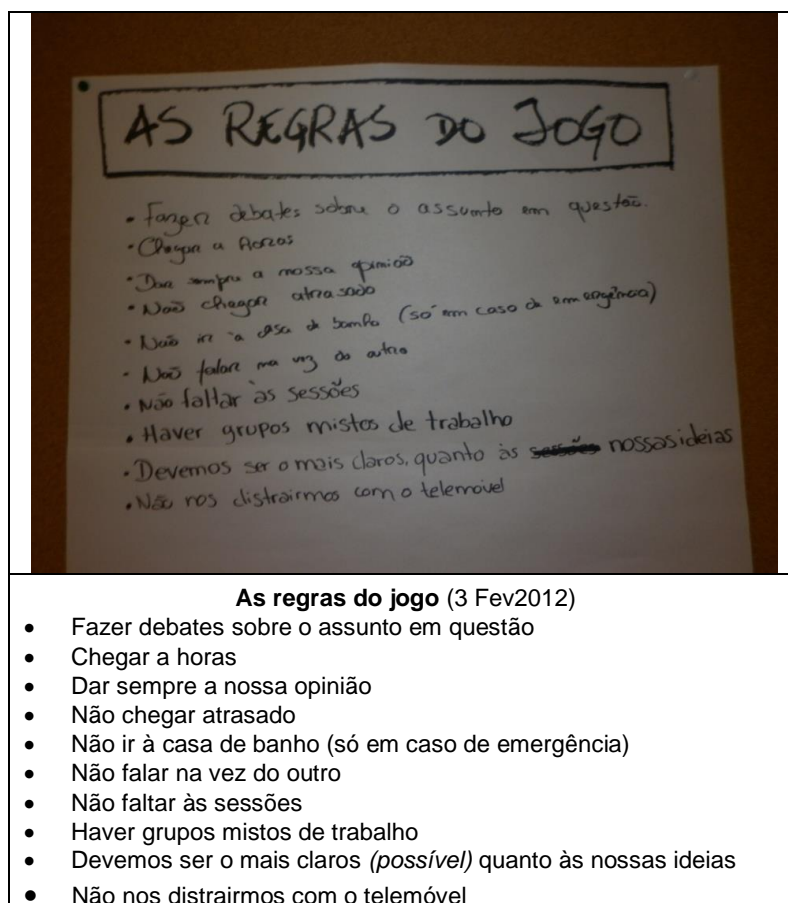 AS REGRAS DO JOGO
• Fazer debates sobre o assunto em questão.
• Chegar a horas
• Dar sempre a nossa opinião
• Não chegar atrasado
• Não ir à casa de banho (só em caso de emergência)
• Não falar na vez do outro
• Não faltar às sessões
• Haver grupos mistos de trabalho
• Devemos ser o mais claros, quanto às sessões nossas ideias
• Não nos distrairmos com o telemovel
As regras do jogo (3 Fev2012)
• Fazer debates sobre o assunto em questão
• Chegar a horas
• Dar sempre a nossa opinião
• Não chegar atrasado
• Não ir à casa de banho (só em caso de emergência)
• Não falar na vez do outro
• Não faltar às sessões
• Haver grupos mistos de trabalho
• Devemos ser o mais claros (possível) quanto às nossas ideias
• Não nos distrairmos com o telemóvel